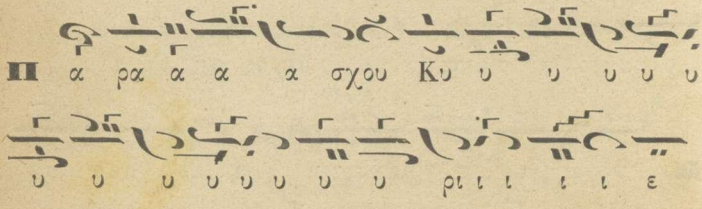 Π α ρα α α α σχου Κυ υ υ υ υ υ
υ υ υ υ υ υ υ υ ρι ι ι ι ι ε